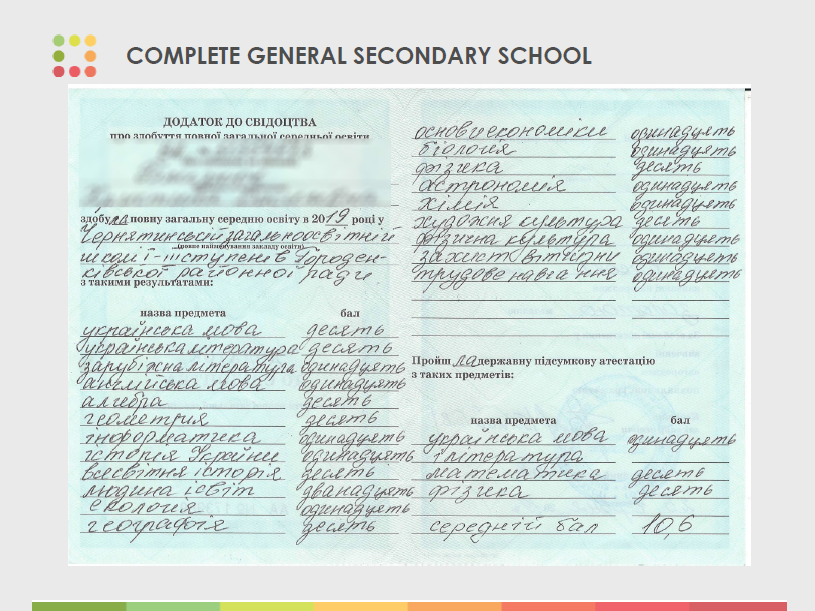 COMPLETE GENERAL SECONDARY SCHOOL
ДОДАТОК ДО СВІДОЦТВА
про здобуття повної загальної середньої освіти
здобула повну загальну середню освіту в 2019 році у
Чернятинській загальноосвітній
(повне найменування закладу освіти)
школі І-ІІІ ступенів Городен-
ківської районної ради
з такими результатами:
назва предмета бал
українська мова десять
українська література десять
зарубіжна література одинадцять
англійська мова одинадцять
алгебра десять
геометрія десять
інформатика одинадцять
історія України одинадцять
всесвітня історія десять
людина і світ дванадцять
екологія одинадцять
географія десять
основи економіки одинадцять
біологія одинадцять
фізика десять
астрономія одинадцять
хімія одинадцять
художня культура десять
фізична культура одинадцять
захист вітчизни одинадцять
трудове навчання одинадцять
Пройшла державну підсумкову атестацію
з таких предметів:
назва предмета бал
українська мова одинадцять
і література
математика десять
фізика десять
середній бал 10,6